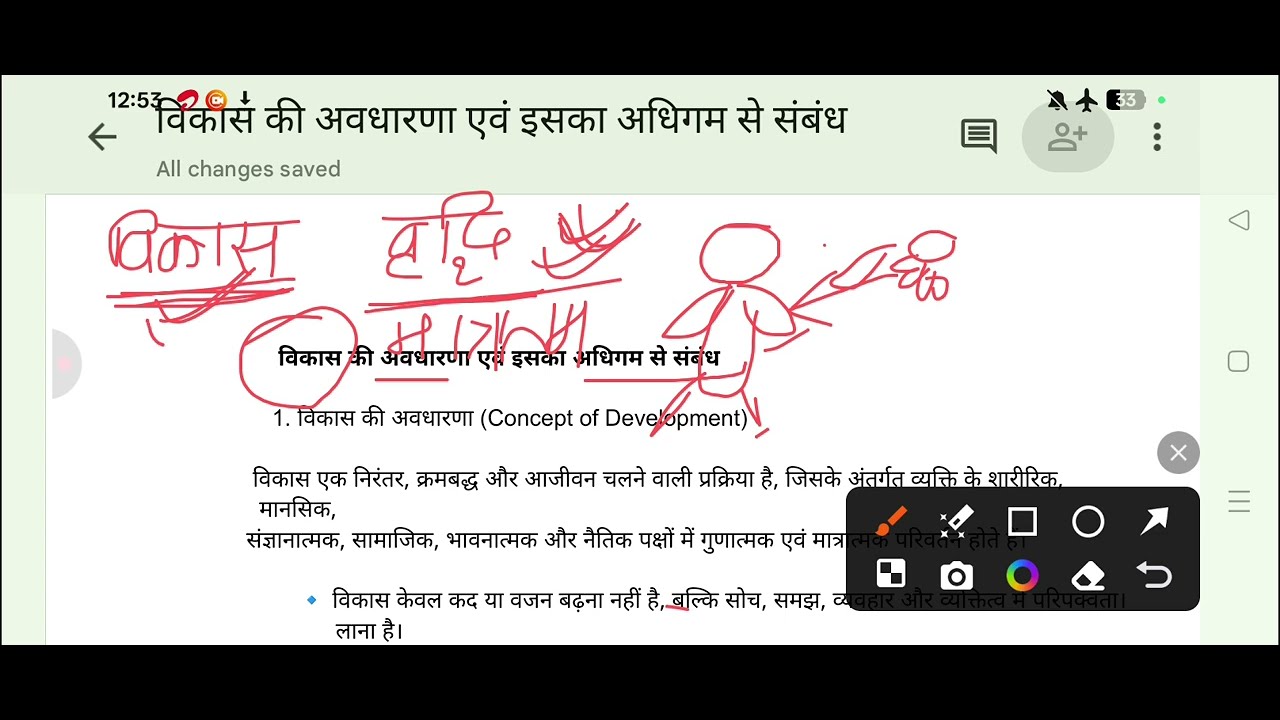 12:53 33
विकास की अवधारणा एवं इसका अधिगम से संबंध
All changes saved
विकास वृद्धि
विकास की अवधारणा एवं इसका अधिगम से संबंध
1. विकास की अवधारणा (Concept of Development)
विकास एक निरंतर, क्रमबद्ध और आजीवन चलने वाली प्रक्रिया है, जिसके अंतर्गत व्यक्ति के शारीरिक,
मानसिक,
संज्ञानात्मक, सामाजिक, भावनात्मक और नैतिक पक्षों में गुणात्मक एवं मात्रात्मक परिवर्तन होते हैं।
🔹 विकास केवल कद या वजन बढ़ना नहीं है, बल्कि सोच, समझ, व्यवहार और व्यक्तित्व में परिपक्वता।
लाना है।